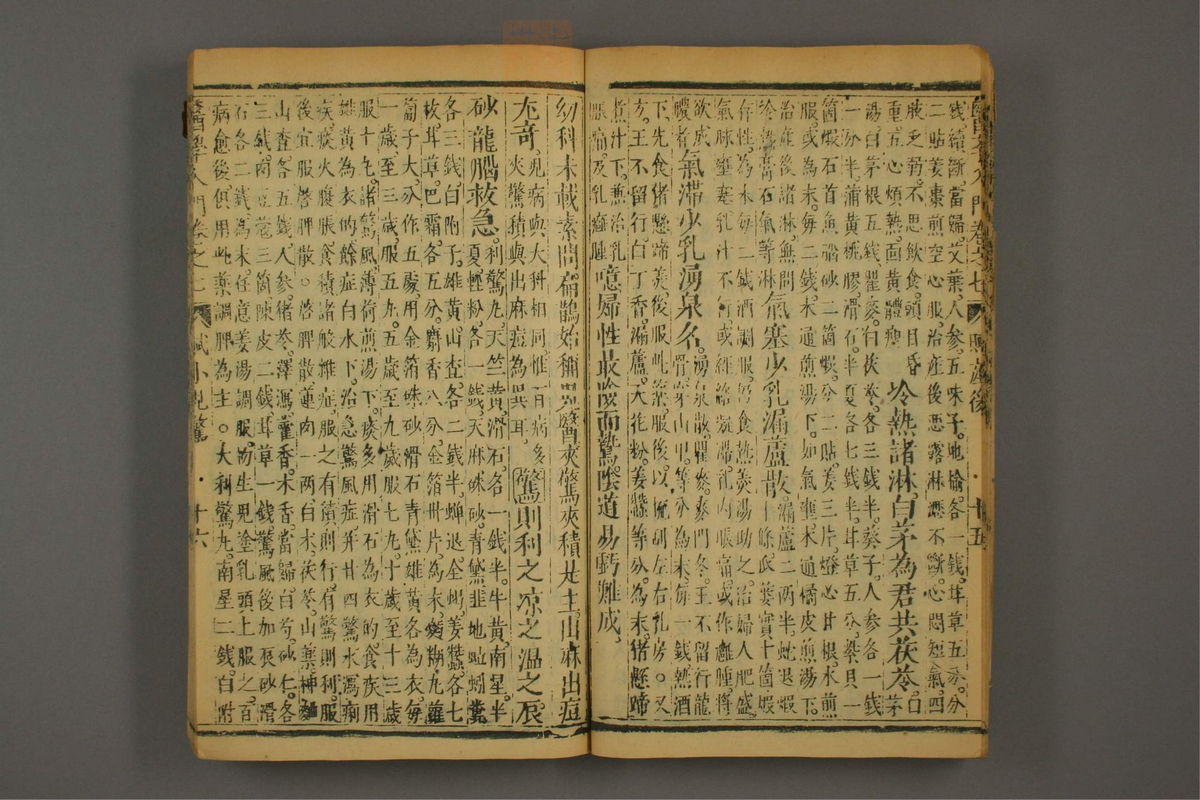 醫學入門 卷之七 婦人產後 十五
錢續斷當歸艾葉人參五味子地榆各一錢甘草五分分
二貼姜棗煎空心服治產後惡露淋瀝不斷心悶短氣四
肢乏弱不思飲食頭目昏
重五心煩熱面黃體瘦
冷熱諸淋白茅為君共茯苓白茅
湯白茅根五錢瞿麥白茯苓各三錢半葵子人參各一錢
一分半蒲黃桃膠滑石半夏各七錢半甘草五分紫貝一
箇蝦石首魚腦砂二箇蝦分二貼姜三片燈心甘根水煎
服或為末每二錢木通煎湯下如氣壅木通橘皮煎湯下
治產後諸淋無問
冷熱膏石氣等淋
氣塞少乳漏蘆散
漏蘆二兩半蛇退
十條瓜蔞實十箇煅
存性為末每二錢酒調服仍食熱羹湯助之治婦人肥盛
氣脈壅塞乳汁不行或經絡凝滯乳內脹痛或作癰腫將
欲成
膿者
氣滯少乳湧泉名
湧泉散瞿麥麥門冬王不留行龍
骨穿山甲等分為末每一錢熱酒
下先食猪懸蹄羹後服此藥服後以梳刮左右乳房○又
方王不留行白丁香漏蘆天花粉姜蠶等分為末猪懸蹄
煮汁下兼治乳
脹痛及乳癰腫
噫婦性最險而鷙陰道易虧難成
幼科未載素問扁鵲始稱兒醫夾驚夾積是主出麻出痘
尤奇
兒病與大科相同惟百病多
夾驚積與出麻痘為異耳
驚則利之凉之温之辰
砂龍腦救急
利驚丸天竺黃滑石各一錢半牛黃南星半
夏輕粉各一錢天麻硃砂青黛韭地蚯蚓糞
各三錢白附子雄黃山查各二錢半蟬退全蝎姜蠶各七
枚甘草巴霜各五分麝香八分金箔卅片為末麪糊丸蘿
蔔子大分作五處用金箔硃砂滑石青黛雄黃各為衣每
一歲至三歲服五九五歲至九歲服七九十歲至十三歲
服十九諸驚風薄荷煎湯下痰多用滑石為衣的食疾用
雄黃為衣的餘症白水下治急驚風症并廿四驚水瀉痢
疾痰火腹脹食積諸般雜症服之有積則行有驚則利服
後宜服啓脾散○啓脾散蓮肉一兩白朮茯苓山藥神麯
山查各五錢人參猪苓澤瀉藿香木香當歸白芍砂仁各
三錢肉豆蔻三箇陳皮二錢甘草一錢驚風後加辰砂滑
石各二錢為末任意姜湯調服初生兒塗乳頭上服之百
病愈後俱用此藥調脾為主○大利驚丸南星二錢白附
醫學入門 卷之七 賦小兒驚 十六